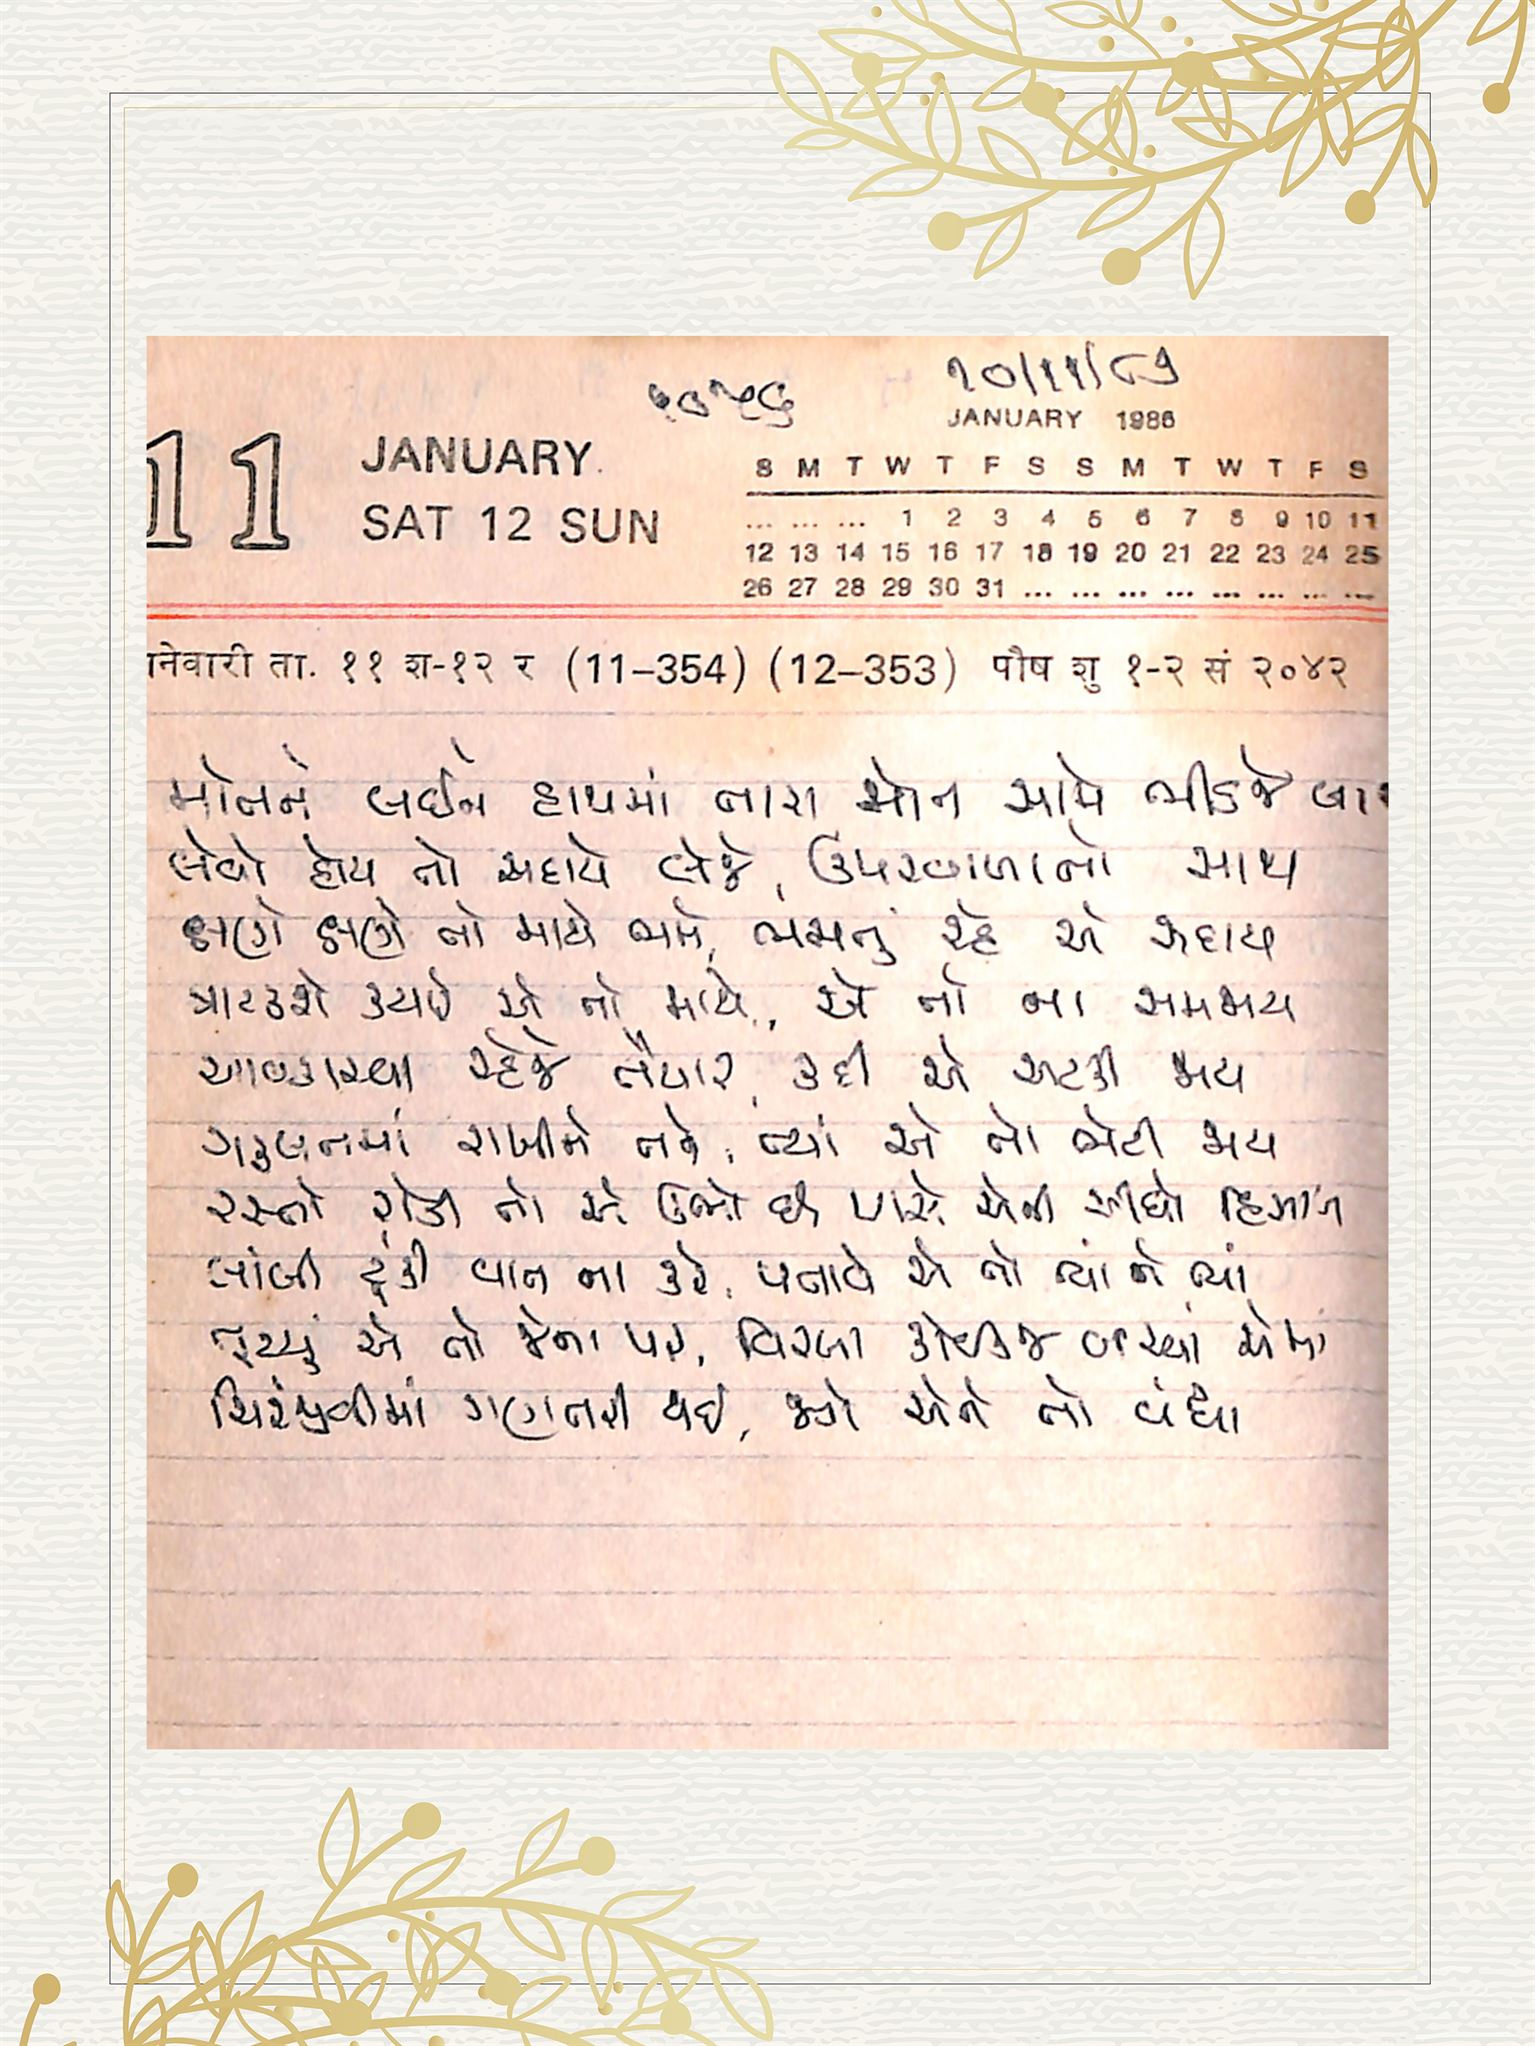 ૧૦/૧૧/૮૭
JANUARY 1986
11 JANUARY.
SAT 12 SUN
S M T W T F S S M T W T F S
... ... ... 1 2 3 4 5 6 7 8 9 10 11
12 13 14 15 16 17 18 19 20 21 22 23 24 25
26 27 28 29 30 31 ... ... ... ... ... ... ... ...
नेवारी ता. ११ श-१२ र (11–354) (12–353) पौष शु १-२ सं २०४२
મોતને લઈને હાથમાં તારા મોત સામે ભીડજે બા
લેવો હોય તો સદાયે લેજે, ઉપરવાળાનો સાથ
ક્ષણે ક્ષણે તો માથે ભમે, ભમતું રહે એ સદાય
ત્રાટકશે કયારે એ તો માથે, એ તો ના સમજાય
આવકારવા રહેજે તૈયાર, કદી એ અટકી જાય
ગફલતમાં રાખીને તને, ત્યાં એ તો ભેટી જાય
રસ્તો રોકી તો એ ઉભો છે પાસે એની સીધો હિસાબ
લાંબી ટૂંકી વાત ના કરે, પતાવે એ તો ત્યાં ને ત્યાં
ત્રુટયું એ તો જેના પર, વિરલા કોઈકજ બચ્યાં એમાં
ચિરંજીવીમાં ગણતરી થઈ, જગે એને તો વંદ્યા